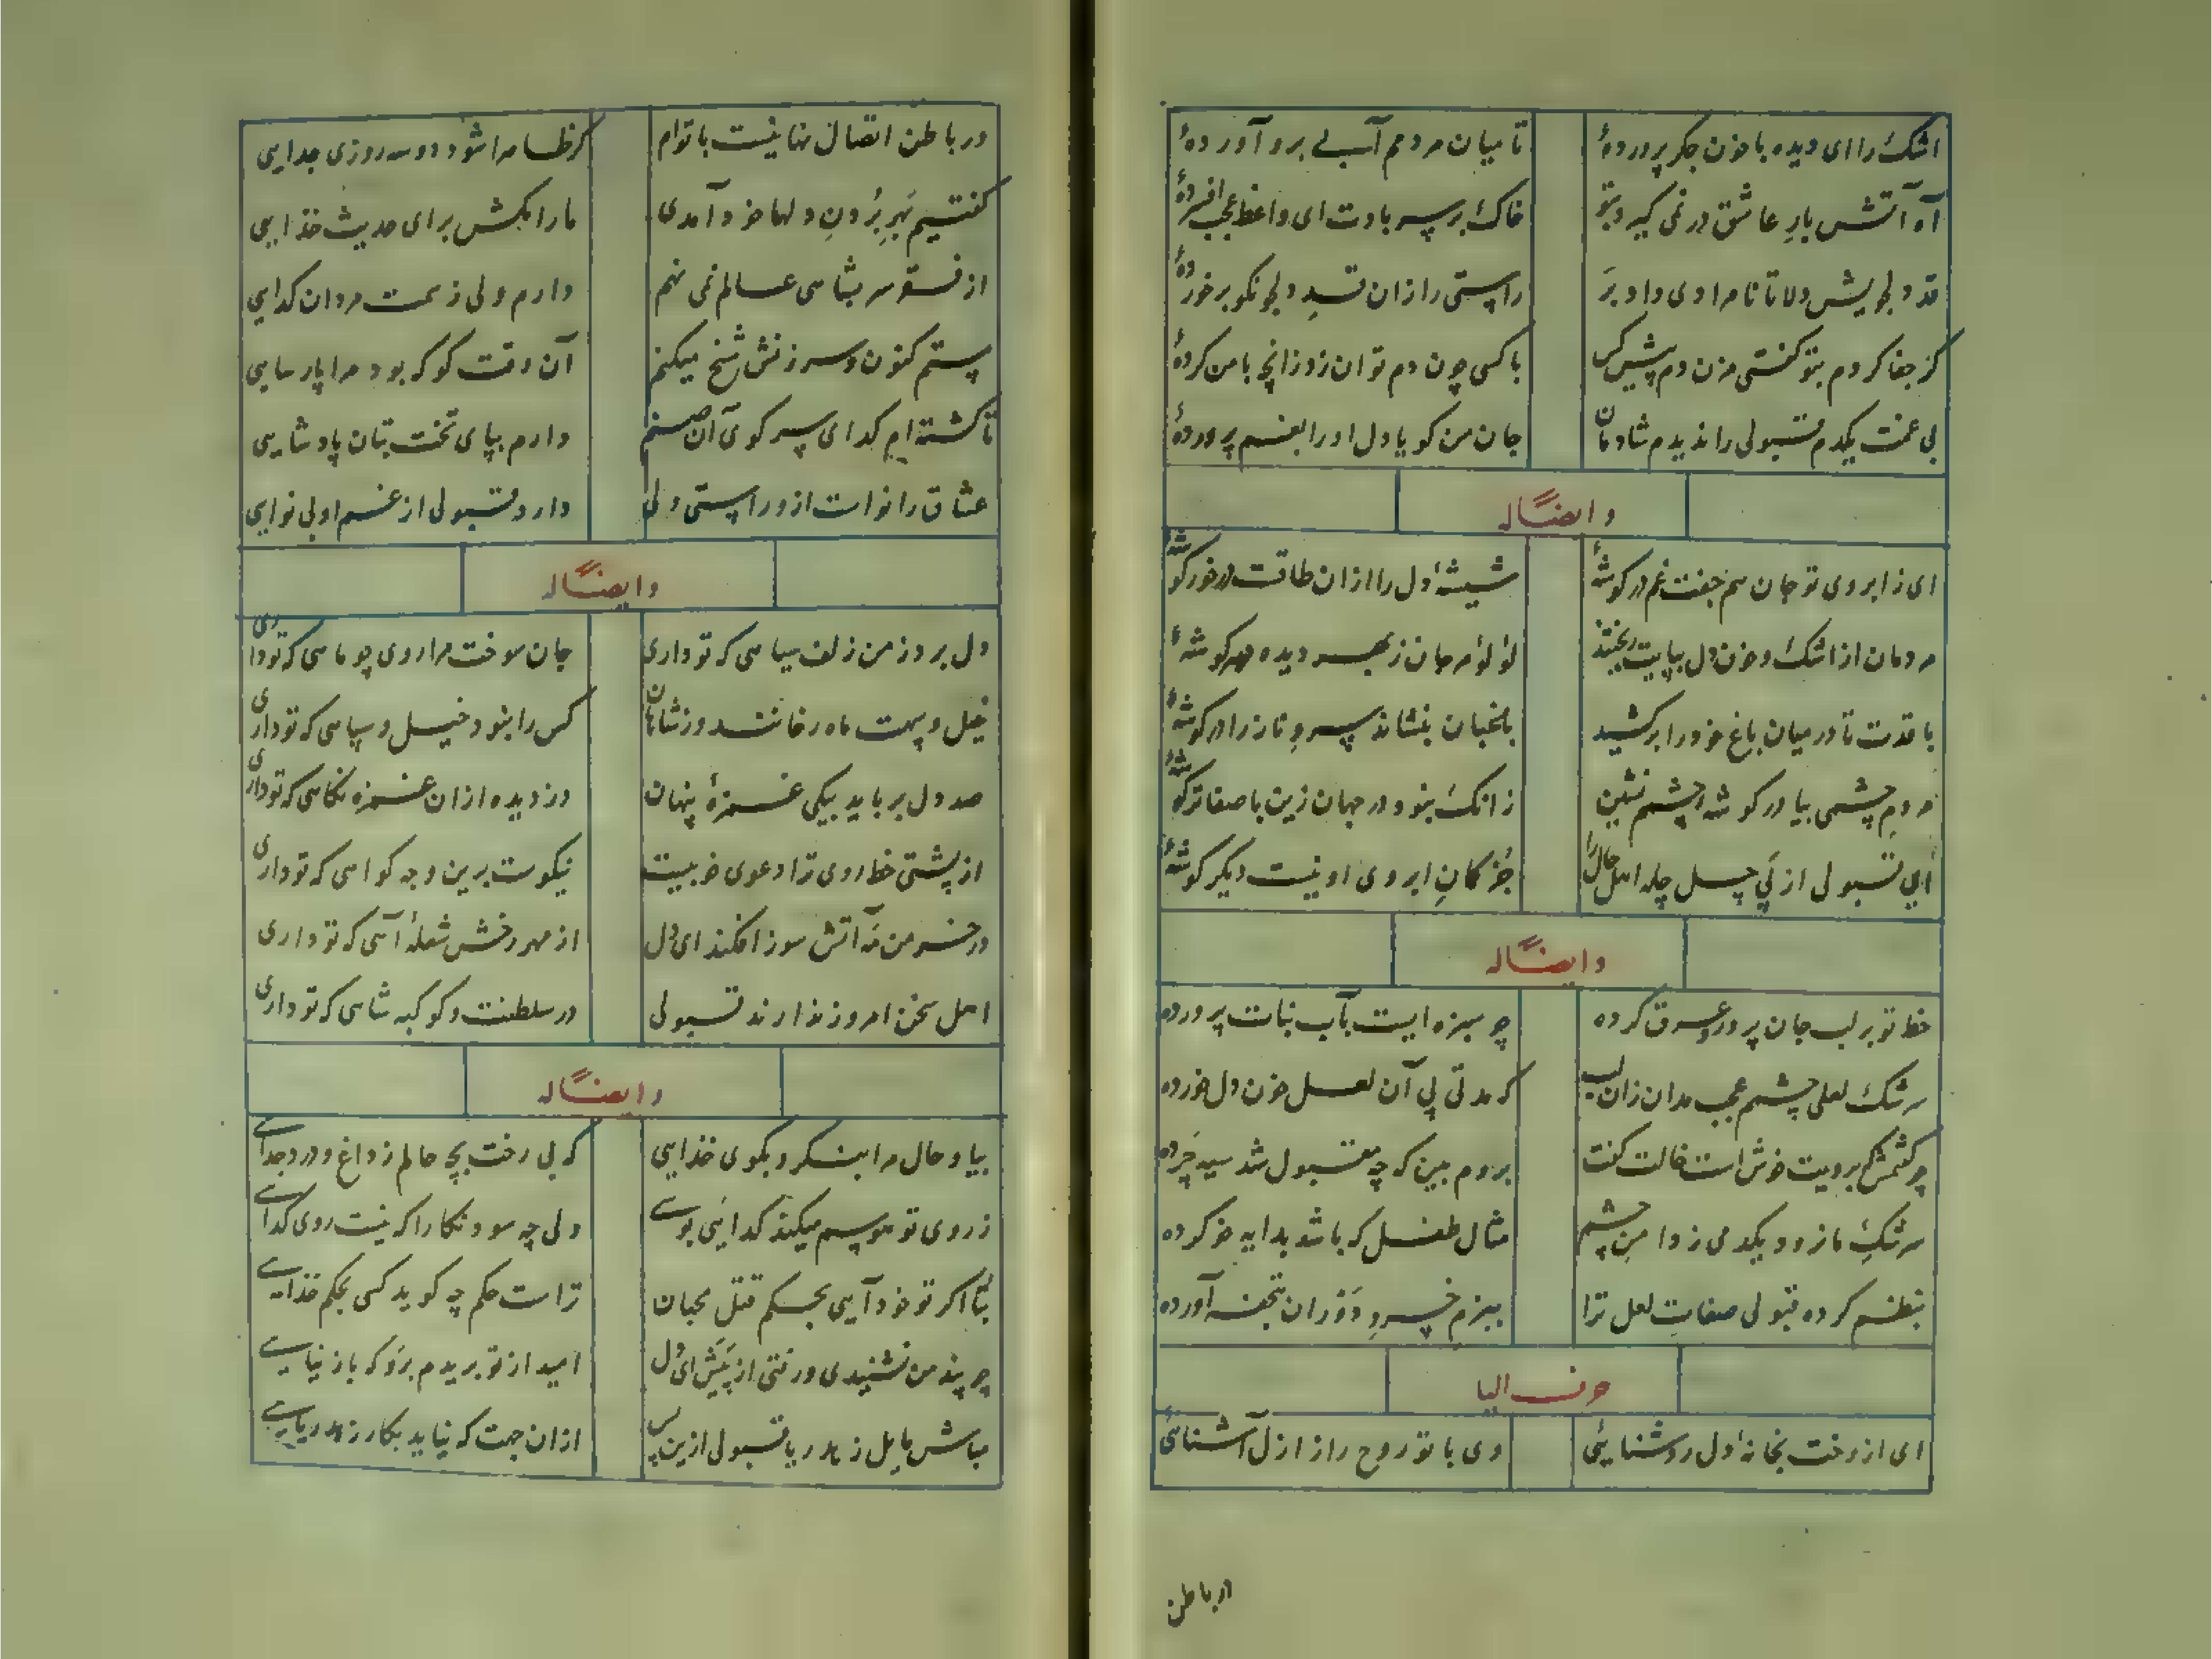 اشک را ای دیده با خون جگر پروردهٔ
تا میان مردمم آبی برو آوردهٔ
آه آتش بار عاشق در نمی گیرد بتو
خاک بر سر بادت ای واعظ عجب افسردهٔ
قد دلجویش دلا تا نامرادی داد بر
راستی را زان قد دلجو نکو برخوردهٔ
کز جفا کردم بتو گفتی مزن دم پیش کس
با کسی چون دم توان زد زانچه با من کردهٔ
بی غمت یکدم قبولی را ندیدم شادمان
جان من گویا دل او را بغم پروردهٔ
وایضاً له
ای ز ابروی تو جان هم جفت غم در گوشهٔ
شیشهٔ دل را ازان طاقت در خور گوشهٔ
مردمان از اشک و خون دل بپایت ریختند
لؤلؤ مرجان ز بهر دیده هر گوشهٔ
با قدت تا در میان باغ خود را برکشید
باغبان بنشاند سرو ناز را در گوشهٔ
مردم چشمی بیا در گوشهٔ چشم نشین
زانک نبود در جهان زین با صفاتر گوشهٔ
ای قبولی از پی چل چله اهل حال را
جز کمان ابروی او نیست دیگر گوشهٔ
وایضاً له
خط تو بر لب جان پرور و عرق کرده
چو سبزه ایست بآب نبات پرورده
سرشک لعلی چشمم عجب مدان زان لب
که مدتی پی آن لعل خون دل خورده
چو گفتمش که برویت خوش است خالت گفت
بروم بین که چه مقبول شد سیه چرده
سرشک ما نرود یکدمی ز دامن چشم
مثال طفل که باشد بدایه خو کرده
بنظم کرده قبولی صفات لعل ترا
ببزم خسرو دوران تحفه آورده
حرف الیا
ای از رخت بخانهٔ دل روشنایئی
وی با تو روح را ز ازل آشنائی
در باطن
در باطن اتصال نهانیست با توام
گر ظاهرا شود دو سه روزی جدایی
گفتیم بهر بردن دلها خود آمدی
ما را بکش برای حدیث خدایی
از فقر سر بشاهی عالم نمی نهم
دارم ولی ز همت مردان گدایی
مستم کنون و سرزنش شیخ میکنم
آن وقت کو که بود مرا پارسایی
تا گشته ام گدای سر کوی آن صنم
دارم بپای تخت بتان پادشایی
عشاق را نواست ازو راستی ولی
دارد قبولی از غم او بی نوایی
وایضاً له
دل برد ز من زلف سیاهی که تو داری
جان سوخت مرا روی چو ماهی که تو داری
خیل و سپهت ماه رخانند و ز شاهان
کس را نبود خیل و سپاهی که تو داری
صد دل برباید بیکی غمزهٔ پنهان
دزدیده ازان غمزه نگاهی که تو داری
از پشتی خط روی ترا دعوی خوبیست
نیکوست برین وجه گواهی که تو داری
در خرمن مه آتش سوز افکند ای دل
از مهر رخش شعلهٔ آهی که تو داری
اهل سخن امروز ندارند قبولی
در سلطنت و کوکبه شاهی که تو داری
وایضاً له
بیا و حال مرا بنگر و بگوی خدایی
که بی رخت بچه حالم ز داغ و درد جدایی
ز روی تو هوسم میکند گدائی بوسے
ولی چه سود نگارا که نیست روی گدایی
بتا اگر تو خود آیی بحکم قتل محبان
تراست حکم چه گوید کسی بحکم خدایی
چو پند من نشنیدی و رفتی از پیش ای دل
امید از تو بریدم برو که باز نیایی
مباش مایل زهد ریا قبولی ازین پس
ازان جهت که نیاید بکار زهد ریایی